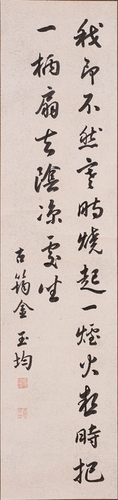 我即不然寒時燒起一爐火熱時把
一柄扇去陰涼處坐
古筠金玉均